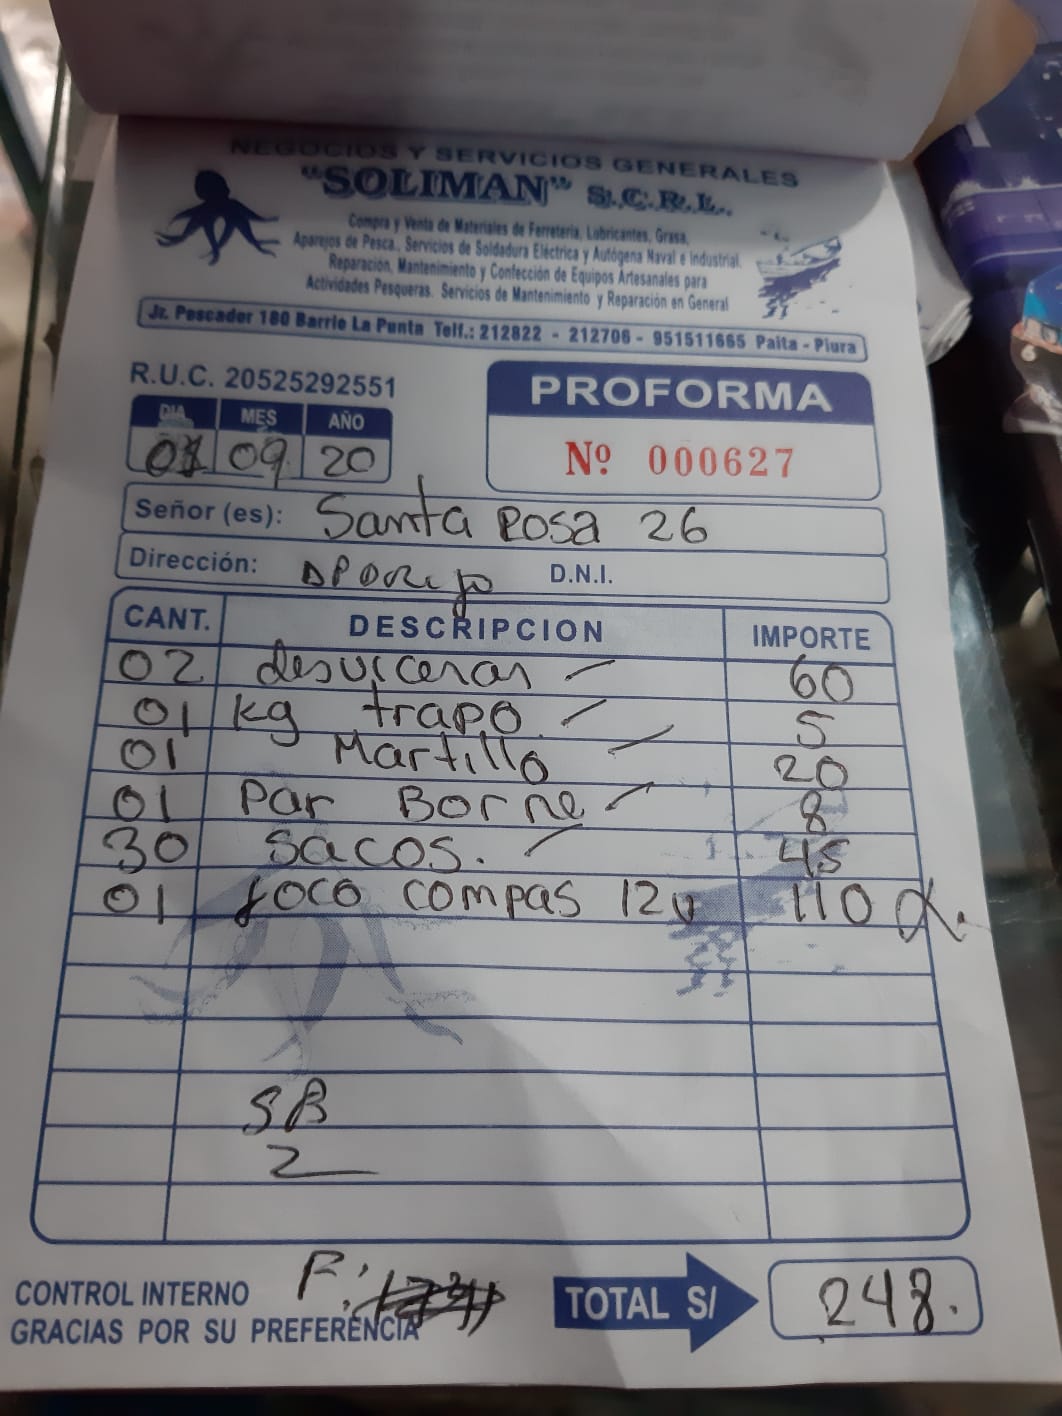 NEGOCIOS Y SERVICIOS GENERALES
"SOLIMAN" S.C.R.L.
Compra y Venta de Materiales de Ferreteria, Lubricantes, Grasa,
Aparejos de Pesca., Servicios de Soldadura Eléctrica y Autógena Naval e Industrial.
Reparación, Mantenimiento y Confección de Equipos Artesanales para
Actividades Pesqueras. Servicios de Mantenimiento y Reparación en General
Jr. Pescador 180 Barrio La Punta Telf.: 212822 - 212706 - 951511665 Paita - Piura
R.U.C. 20525292551
PROFORMA
DIA MES AÑO
Nº 000627
09 20
Señor (es): Santa Rosa 26
Dirección: D.N.I.
CANT. DESCRIPCION IMPORTE
02 60
01 kg trapo 5
01 Martillo 20
01 Par Borne 8
30 Sacos. 45
01 foco compas 12v 110
SB
2
CONTROL INTERNO F:
GRACIAS POR SU PREFERENCIA
TOTAL S/ 248.